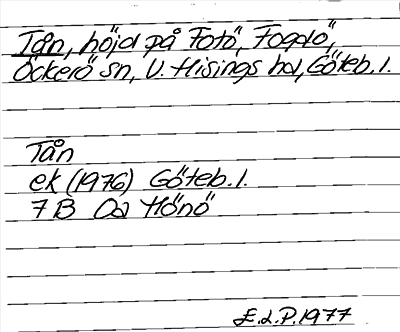 Tån, höjd på Fotö, Fogdö,
Öckerö sn, V. Hisings hd, Göteb. l.
Tån
ek (1976) Göteb. l.
7 B Od Hönö
E.L.P. 1977